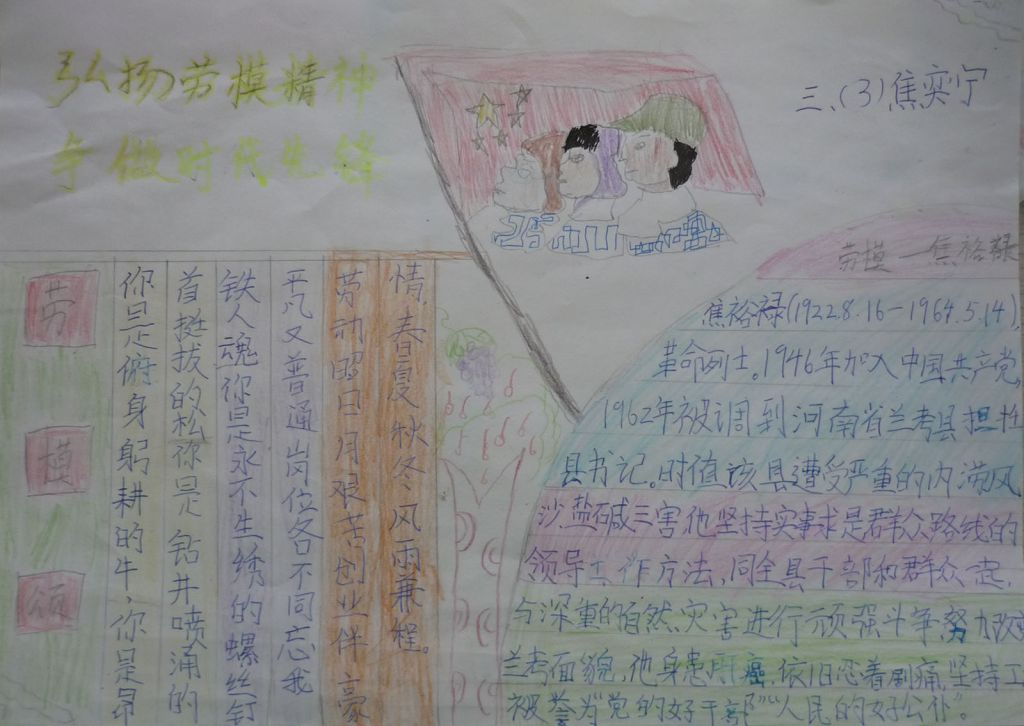 弘扬劳模精神
争做时代先锋
三、(3)焦奕宁
劳
模
颂
你是俯身躬耕的牛,你是昂
首挺拔的松你是钻井喷涌的
铁人魂你是永不生绣的螺丝钉
平凡又普通岗位各不同忘我
劳动昭日月艰苦创业伴豪
情,春夏秋冬风雨兼程。
劳模—焦裕禄
焦裕禄(1922.8.16-1964.5.14),
革命烈士。1946年加入中国共产党,
1962年被调到河南省兰考县担任
县书记。时值该县遭受严重的内涝风
沙盐碱三害他坚持实事求是群众路线的
领导工作方法,同全县干部和群众一起,
与深重的自然灾害进行顽强斗争,努力改变
兰考面貌,他身患肝癌,依旧忍着剧痛,坚持工
被誉为党的好干部”“人民的好公仆”